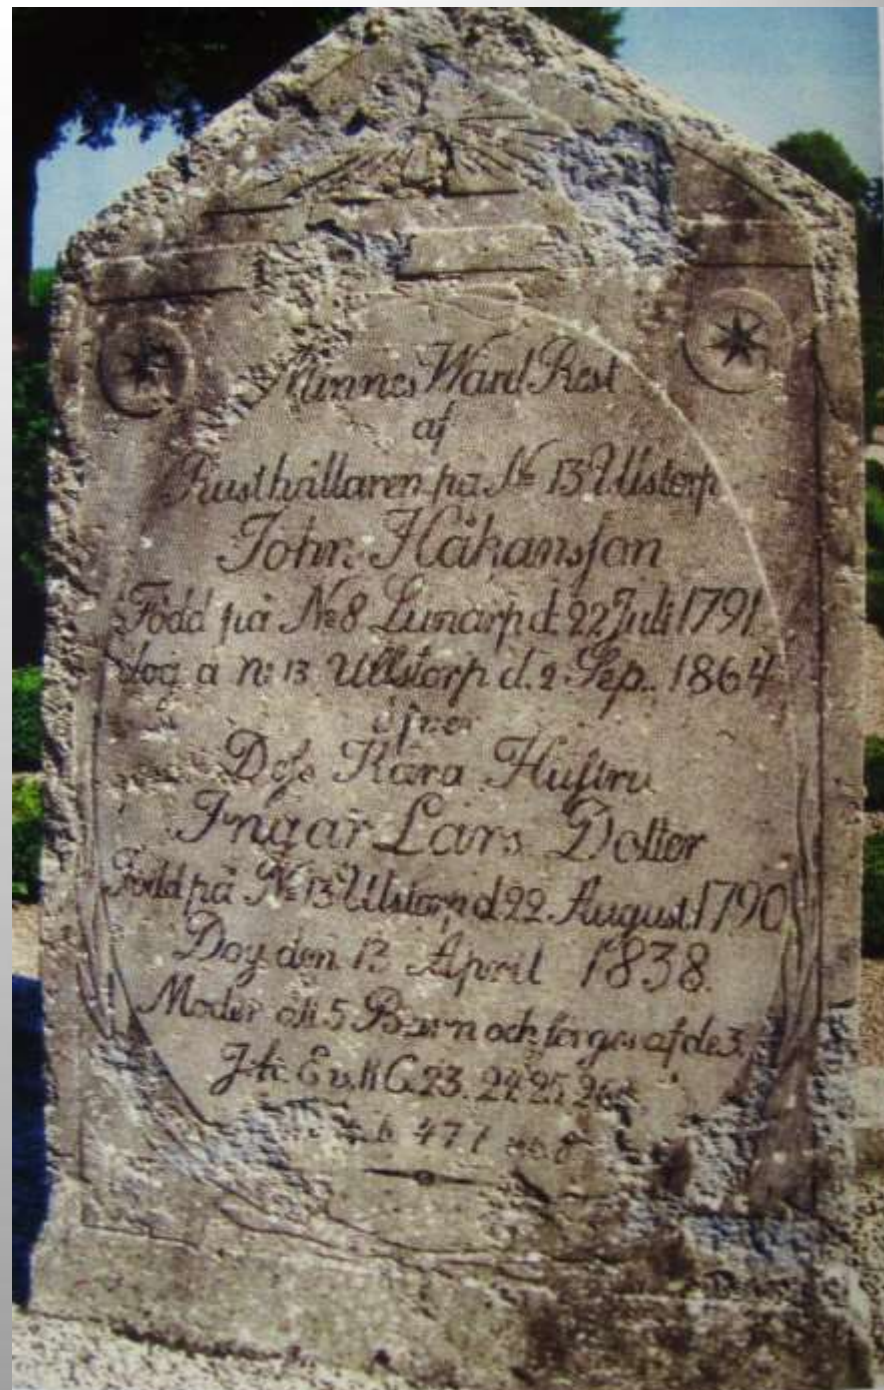 Minnes Ward Rest
af
Rusthållaren på No 13 Ullstorp
John Håkansſon
Född på No 8 Lunarp d. 22 Juli 1791.
dog å No 13 Ullstorp d. 2 Sep. 1864
öfver
Deſs Kära Huſtru
Ingar Lars Dotter
Född på No 13 Ullstorp d 22. August. 1790
Dog den 13 April 1838.
Moder till 5 Barn och sörges af de 3.
C. 23. 24. 25. 26
477